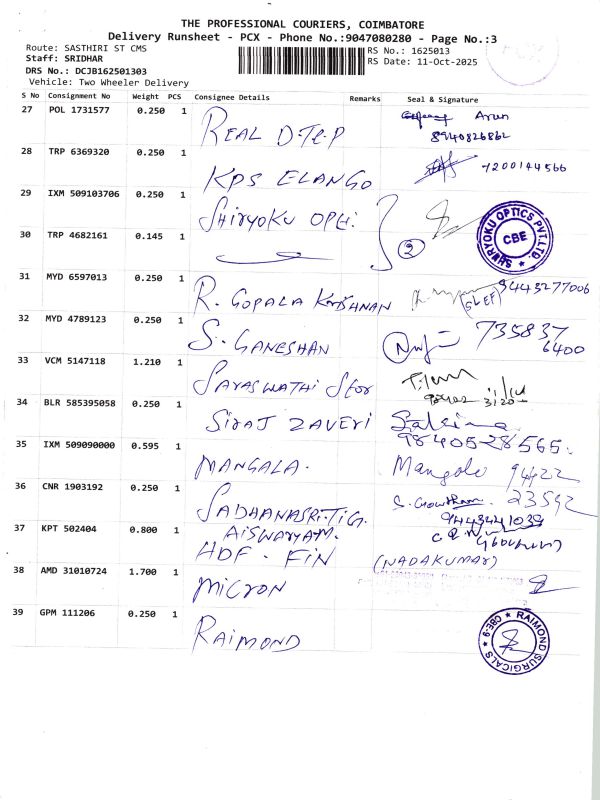 THE PROFESSIONAL COURIERS, COIMBATORE
Delivery Runsheet - PCX - Phone No.:9047080280 - Page No.:3
Route: SASTHIRI ST CMS
RS No.: 1625013
Staff: SRIDHAR
RS Date: 11-Oct-2025
DRS No.: DCJB162501303
Vehicle: Two Wheeler Delivery
S No Consignment No Weight PCS Consignee Details Remarks Seal & Signature
27 POL 1731577 0.250 1 REAL D.T.P Arun
8940826862
28 TRP 6369320 0.250 1 KPS ELANGO 7200144566
29 IXM 509103706 0.250 1 SHIRYOKU OPti.
SHIRYOKU OPTICS PVT.LTD. CBE
30 TRP 4682161 0.145 1 2
31 MYD 6597013 0.250 1 R. GOPALA KRISHNAN (SLEF) 9443277006
32 MYD 4789123 0.250 1 S. GANESHAN 735837
6400
33 VCM 5147118 1.210 1 SARASWATHI Stor
34 BLR 585395058 0.250 1 SIRAJ ZAVERI Salima
9840528565.
35 IXM 509090000 0.595 1 MANGALA. Mangala 94422
23592
36 CNR 1903192 0.250 1 SADHANASRI.T.G. S. Gowtham.
9443441039
37 KPT 502404 0.800 1 AISWARYAM.
HDF - FIN (NADAKUMAR)
38 AMD 31010724 1.700 1 MICRON
39 GPM 111206 0.250 1 RAIMOND
RAIMOND SURGICALS CBE-9